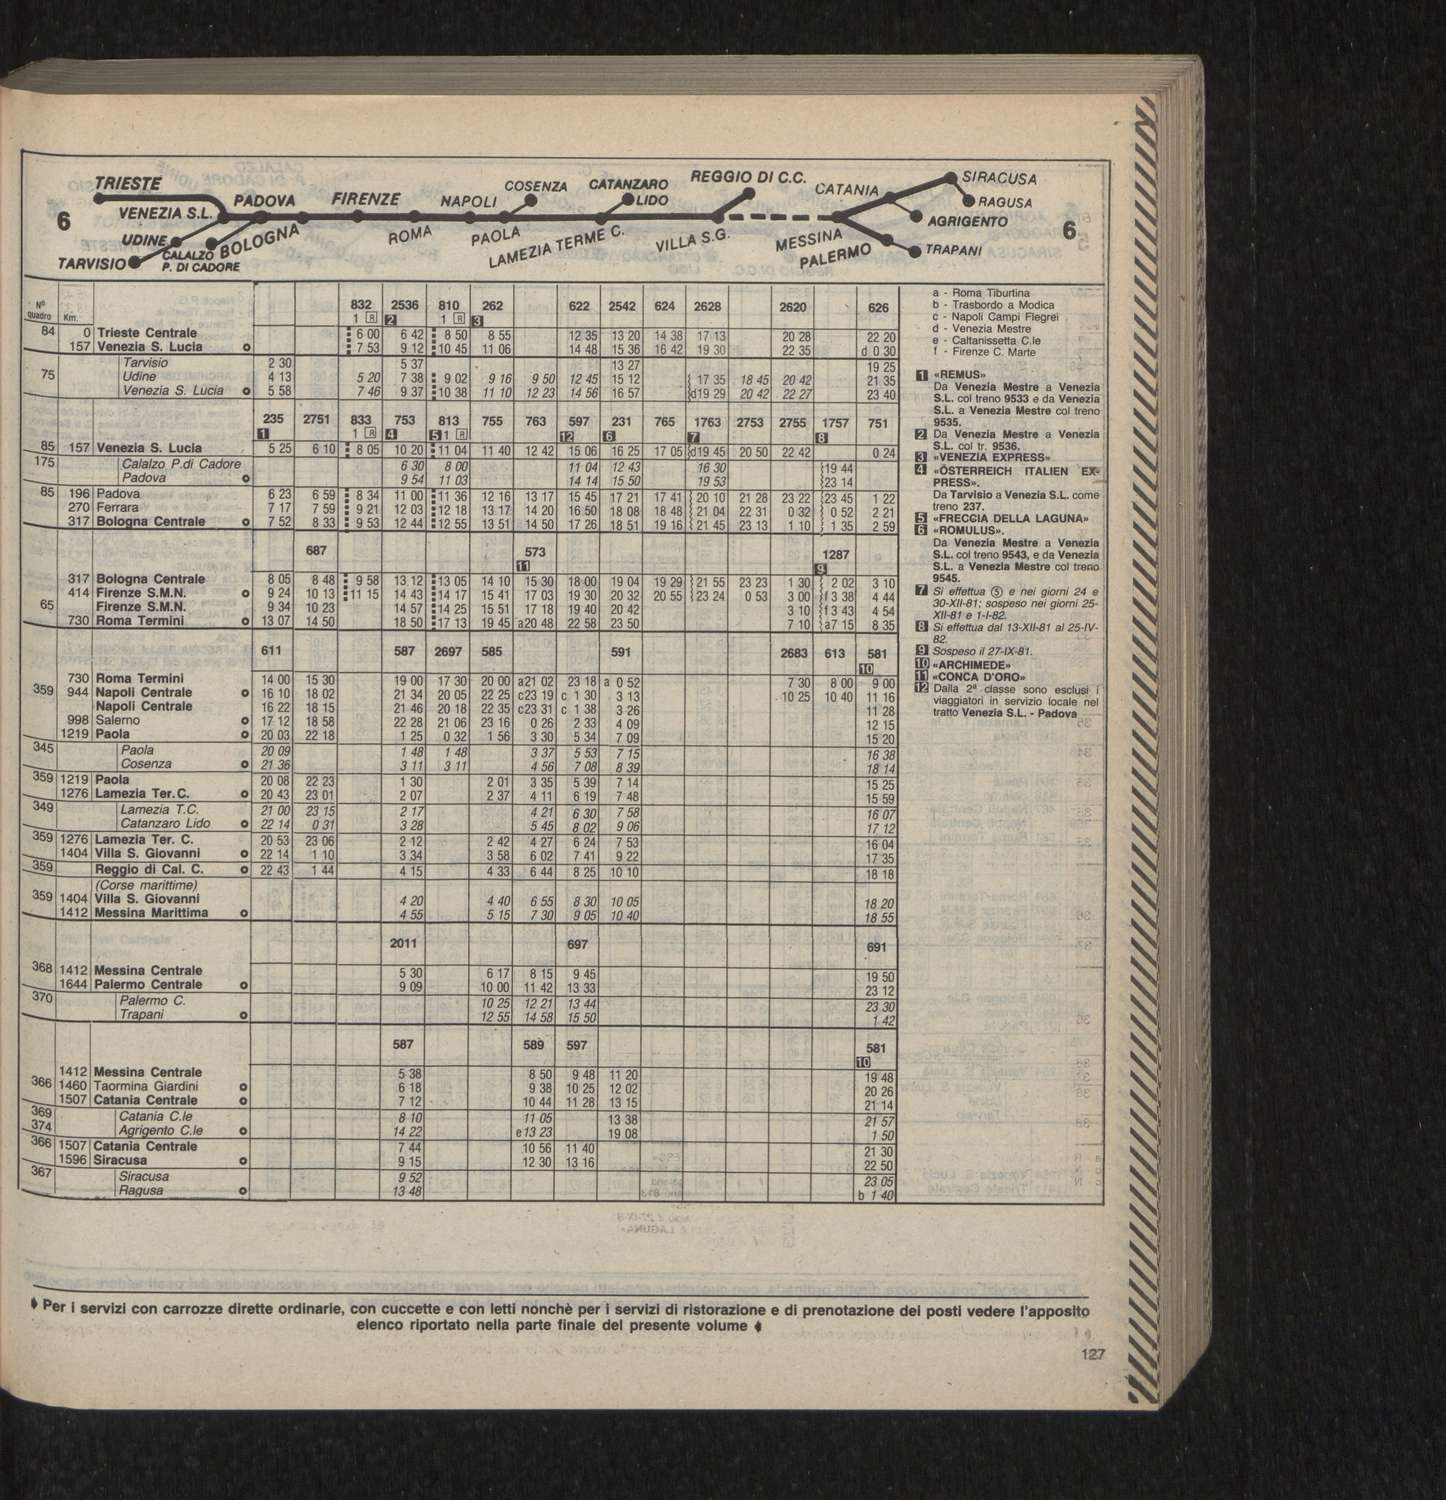 TRIESTE
VENEZIA S.L.
PADOVA
FIRENZE
NAPOLI
COSENZA
CATANZARO LIDO
REGGIO DI C.C.
CATANIA
SIRACUSA
RAGUSA
AGRIGENTO
TRAPANI
6
UDINE
TARVISIO
CALALZO P. DI CADORE
BOLOGNA
ROMA
PAOLA
LAMEZIA TERME C.
VILLA S.G.
MESSINA
PALERMO
6
Nº quadro Km. 832 2536 810 262 622 2542 624 2628 2620 626
1 R 2 1 R 3
84 0 Trieste Centrale 6 00 6 42 8 50 8 55 12 35 13 20 14 38 17 13 20 28 22 20
157 Venezia S. Lucia 7 53 9 12 10 45 11 06 14 48 15 36 16 42 19 30 22 35 d 0 30
Tarvisio 2 30 5 37 13 27 19 25
75 Udine 4 13 5 20 7 38 9 02 9 16 9 50 12 45 15 12 17 35 18 45 20 42 21 35
Venezia S. Lucia 5 58 7 46 9 37 10 38 11 10 12 23 14 56 16 57 d19 29 20 42 22 27 23 40
235 2751 833 753 813 755 763 597 231 765 1763 2753 2755 1757 751
1 1 R 4 5 1 R 12 6 7 8
85 157 Venezia S. Lucia 5 25 6 10 8 05 10 20 11 04 11 40 12 42 15 06 16 25 17 05 d19 45 20 50 22 42 0 24
175 Calalzo P.di Cadore 6 30 8 00 11 04 12 43 16 30 19 44
Padova 9 54 11 03 14 14 15 50 19 53 23 14
85 196 Padova 6 23 6 59 8 34 11 00 11 36 12 16 13 17 15 45 17 21 17 41 20 10 21 28 23 22 23 45 1 22
270 Ferrara 7 17 7 59 9 21 12 03 12 18 13 17 14 20 16 50 18 08 18 48 21 04 22 31 0 32 0 52 2 21
317 Bologna Centrale 7 52 8 33 9 53 12 44 12 55 13 51 14 50 17 26 18 51 19 16 21 45 23 13 1 10 1 35 2 59
687 573 1287
11 9
317 Bologna Centrale 8 05 8 48 9 58 13 12 13 05 14 10 15 30 18 00 19 04 19 29 21 55 23 23 1 30 2 02 3 10
414 Firenze S.M.N. 9 24 10 13 11 15 14 43 14 17 15 41 17 03 19 30 20 32 20 55 23 24 0 53 3 00 f 3 38 4 44
65 Firenze S.M.N. 9 34 10 23 14 57 14 25 15 51 17 18 19 40 20 42 3 10 f 3 43 4 54
730 Roma Termini 13 07 14 50 18 50 17 13 19 45 a20 48 22 58 23 50 7 10 a7 15 8 35
611 587 2697 585 591 2683 613 581
10
730 Roma Termini 14 00 15 30 19 00 17 30 20 00 a21 02 23 18 a 0 52 7 30 8 00 9 00
359 944 Napoli Centrale 16 10 18 02 21 34 20 05 22 25 c23 19 c 1 30 3 13 10 25 10 40 11 16
Napoli Centrale 16 22 18 15 21 46 20 18 22 35 c23 31 c 1 38 3 26 11 28
998 Salerno 17 12 18 58 22 28 21 06 23 16 0 26 2 33 4 09 12 15
1219 Paola 20 03 22 18 1 25 0 32 1 56 3 30 5 34 7 09 15 20
345 Paola 20 09 1 48 1 48 3 37 5 53 7 15 16 38
Cosenza 21 36 3 11 3 11 4 56 7 08 8 39 18 14
359 1219 Paola 20 08 22 23 1 30 2 01 3 35 5 39 7 14 15 25
1276 Lamezia Ter.C. 20 43 23 01 2 07 2 37 4 11 6 19 7 48 15 59
349 Lamezia T.C. 21 00 23 15 2 17 4 21 6 30 7 58 16 07
Catanzaro Lido 22 14 0 31 3 28 5 45 8 02 9 06 17 12
359 1276 Lamezia Ter. C. 20 53 23 06 2 12 2 42 4 27 6 24 7 53 16 04
1404 Villa S. Giovanni 22 14 1 10 3 34 3 58 6 02 7 41 9 22 17 35
359 Reggio di Cal. C. 22 43 1 44 4 15 4 33 6 44 8 25 10 10 18 18
(Corse marittime)
359 1404 Villa S. Giovanni 4 20 4 40 6 55 8 30 10 05 18 20
1412 Messina Marittima 4 55 5 15 7 30 9 05 10 40 18 55
2011 697 691
368 1412 Messina Centrale 5 30 6 17 8 15 9 45 19 50
1644 Palermo Centrale 9 09 10 00 11 42 13 33 23 12
370 Palermo C. 10 25 12 21 13 44 23 30
Trapani 12 55 14 58 15 50 1 42
587 589 597 581
10
1412 Messina Centrale 5 38 8 50 9 48 11 20 19 48
366 1460 Taormina Giardini 6 18 9 38 10 25 12 02 20 26
1507 Catania Centrale 7 12 10 44 11 28 13 15 21 14
369 Catania C.le 8 10 11 05 13 38 21 57
374 Agrigento C.le 14 22 e13 23 19 08 1 50
366 1507 Catania Centrale 7 44 10 56 11 40 21 30
1596 Siracusa 9 15 12 30 13 16 22 50
367 Siracusa 9 52 23 05
Ragusa 13 48 b 1 40
a - Roma Tiburtina
b - Trasbordo a Modica
c - Napoli Campi Flegrei
d - Venezia Mestre
e - Caltanissetta C.le
f - Firenze C. Marte
1 «REMUS»
Da Venezia Mestre a Venezia
S.L. col treno 9533 e da Venezia
S.L. a Venezia Mestre col treno
9535.
2 Da Venezia Mestre a Venezia
S.L. col tr. 9536.
3 «VENEZIA EXPRESS»
4 «ÖSTERREICH ITALIEN EX-
PRESS».
Da Tarvisio a Venezia S.L. come
treno 237.
5 «FRECCIA DELLA LAGUNA»
6 «ROMULUS».
Da Venezia Mestre a Venezia
S.L. col treno 9543, e da Venezia
S.L. a Venezia Mestre col treno
9545.
7 Si effettua ⑤ e nei giorni 24 e
30-XII-81; sospeso nei giorni 25-
XII-81 e 1-I-82.
8 Si effettua dal 13-XII-81 al 25-IV-
82.
9 Sospeso il 27-IX-81.
10 «ARCHIMEDE»
11 «CONCA D'ORO»
12 Dalla 2ª classe sono esclusi i
viaggiatori in servizio locale nel
tratto Venezia S.L. - Padova
Per i servizi con carrozze dirette ordinarie, con cuccette e con letti nonchè per i servizi di ristorazione e di prenotazione dei posti vedere l'apposito
elenco riportato nella parte finale del presente volume
127